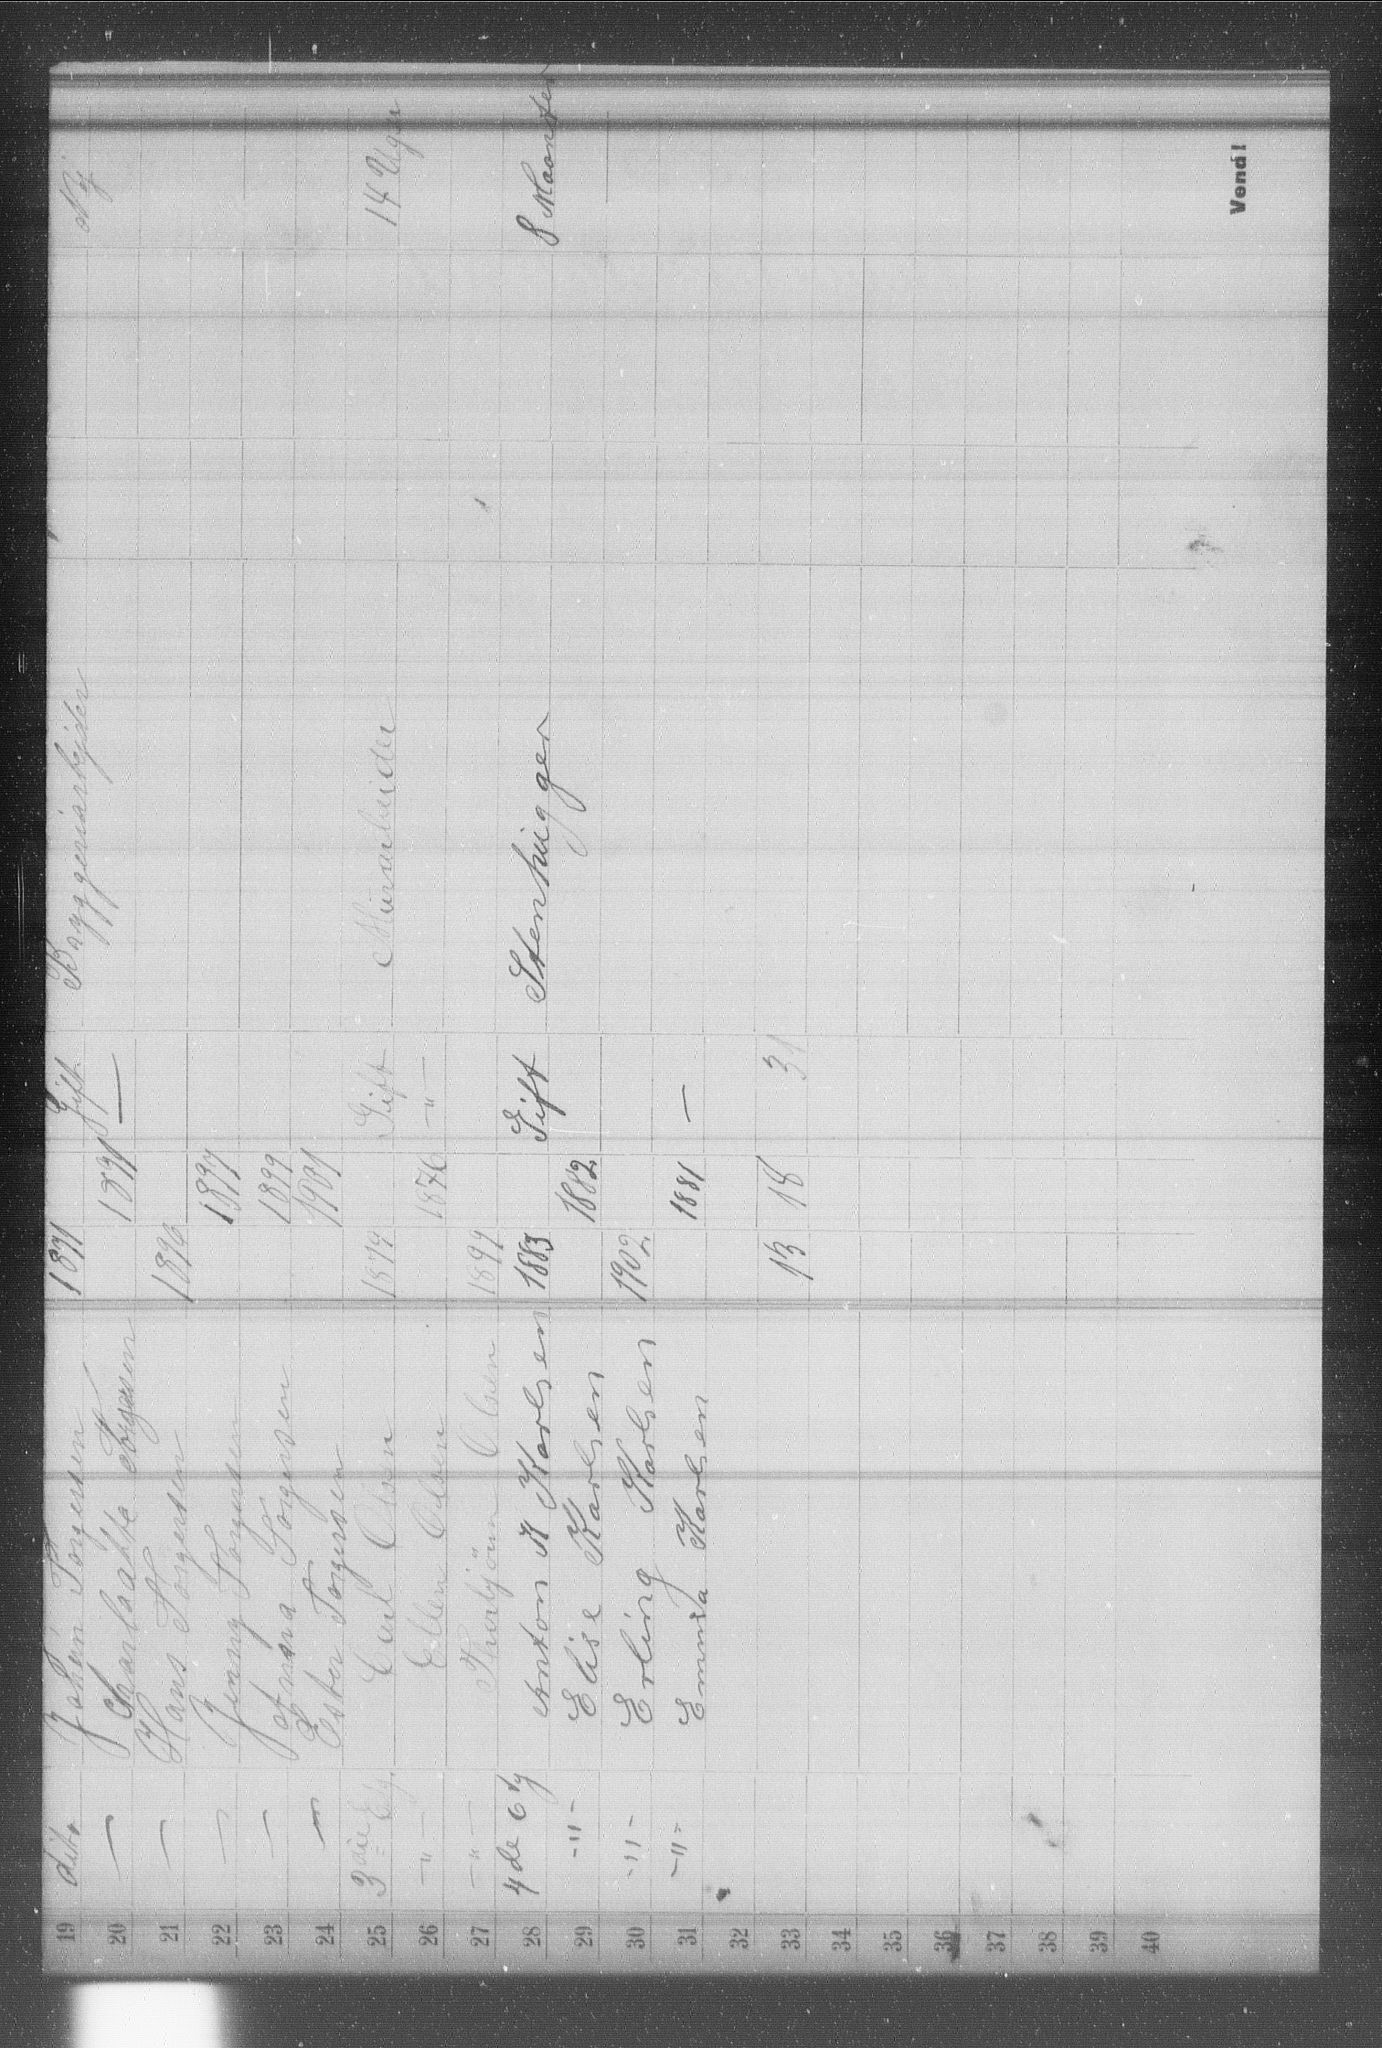 19 dito Johan Torgersen 1871 Gift Baggeriarbejder Nej
20 — Charlaatte Torgersen 1871 —
21 — Hans Torgersen 1896
22 — Jenny Torgersen 1897
23 — Torgersen 1899
24 — Ester Torgersen 1901
25 3die Etg. Carl Olsen 1879 Gift Murarbeider 14 Uger
26 -"- Ellen Olsen 1876 -"-
27 -"- Thorbjörn Olsen 1899
28 4de Etg Anton K Karlsen 1883 Gift Stenhugger 8 Maaneder
29 -"- Elise Karlsen 1882
30 -"- Erling Karlsen 1902
31 -"- Emma Karlsen 1881 —
32
33 13 18 31
34
35
36
37
38
39
40
Vend!